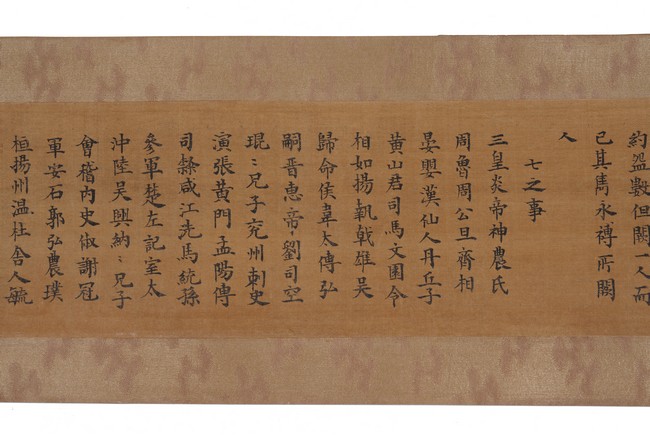 約盌數但闕一人而
已其雋永補所闕
人
七之事
三皇炎帝神農氏
周魯周公旦齊相
晏嬰漢仙人丹丘子
黃山君司馬文園令
相如揚執戟雄吳
歸命侯韋太傅弘
嗣晉惠帝劉司空
琨〻兄子兗州刺史
演張黃門孟陽傅
司隸咸江洗馬統孫
參軍楚左記室太
沖陸吳興納〻兄子
會稽內史俶謝冠
軍安石郭弘農璞
桓揚州温杜舍人毓